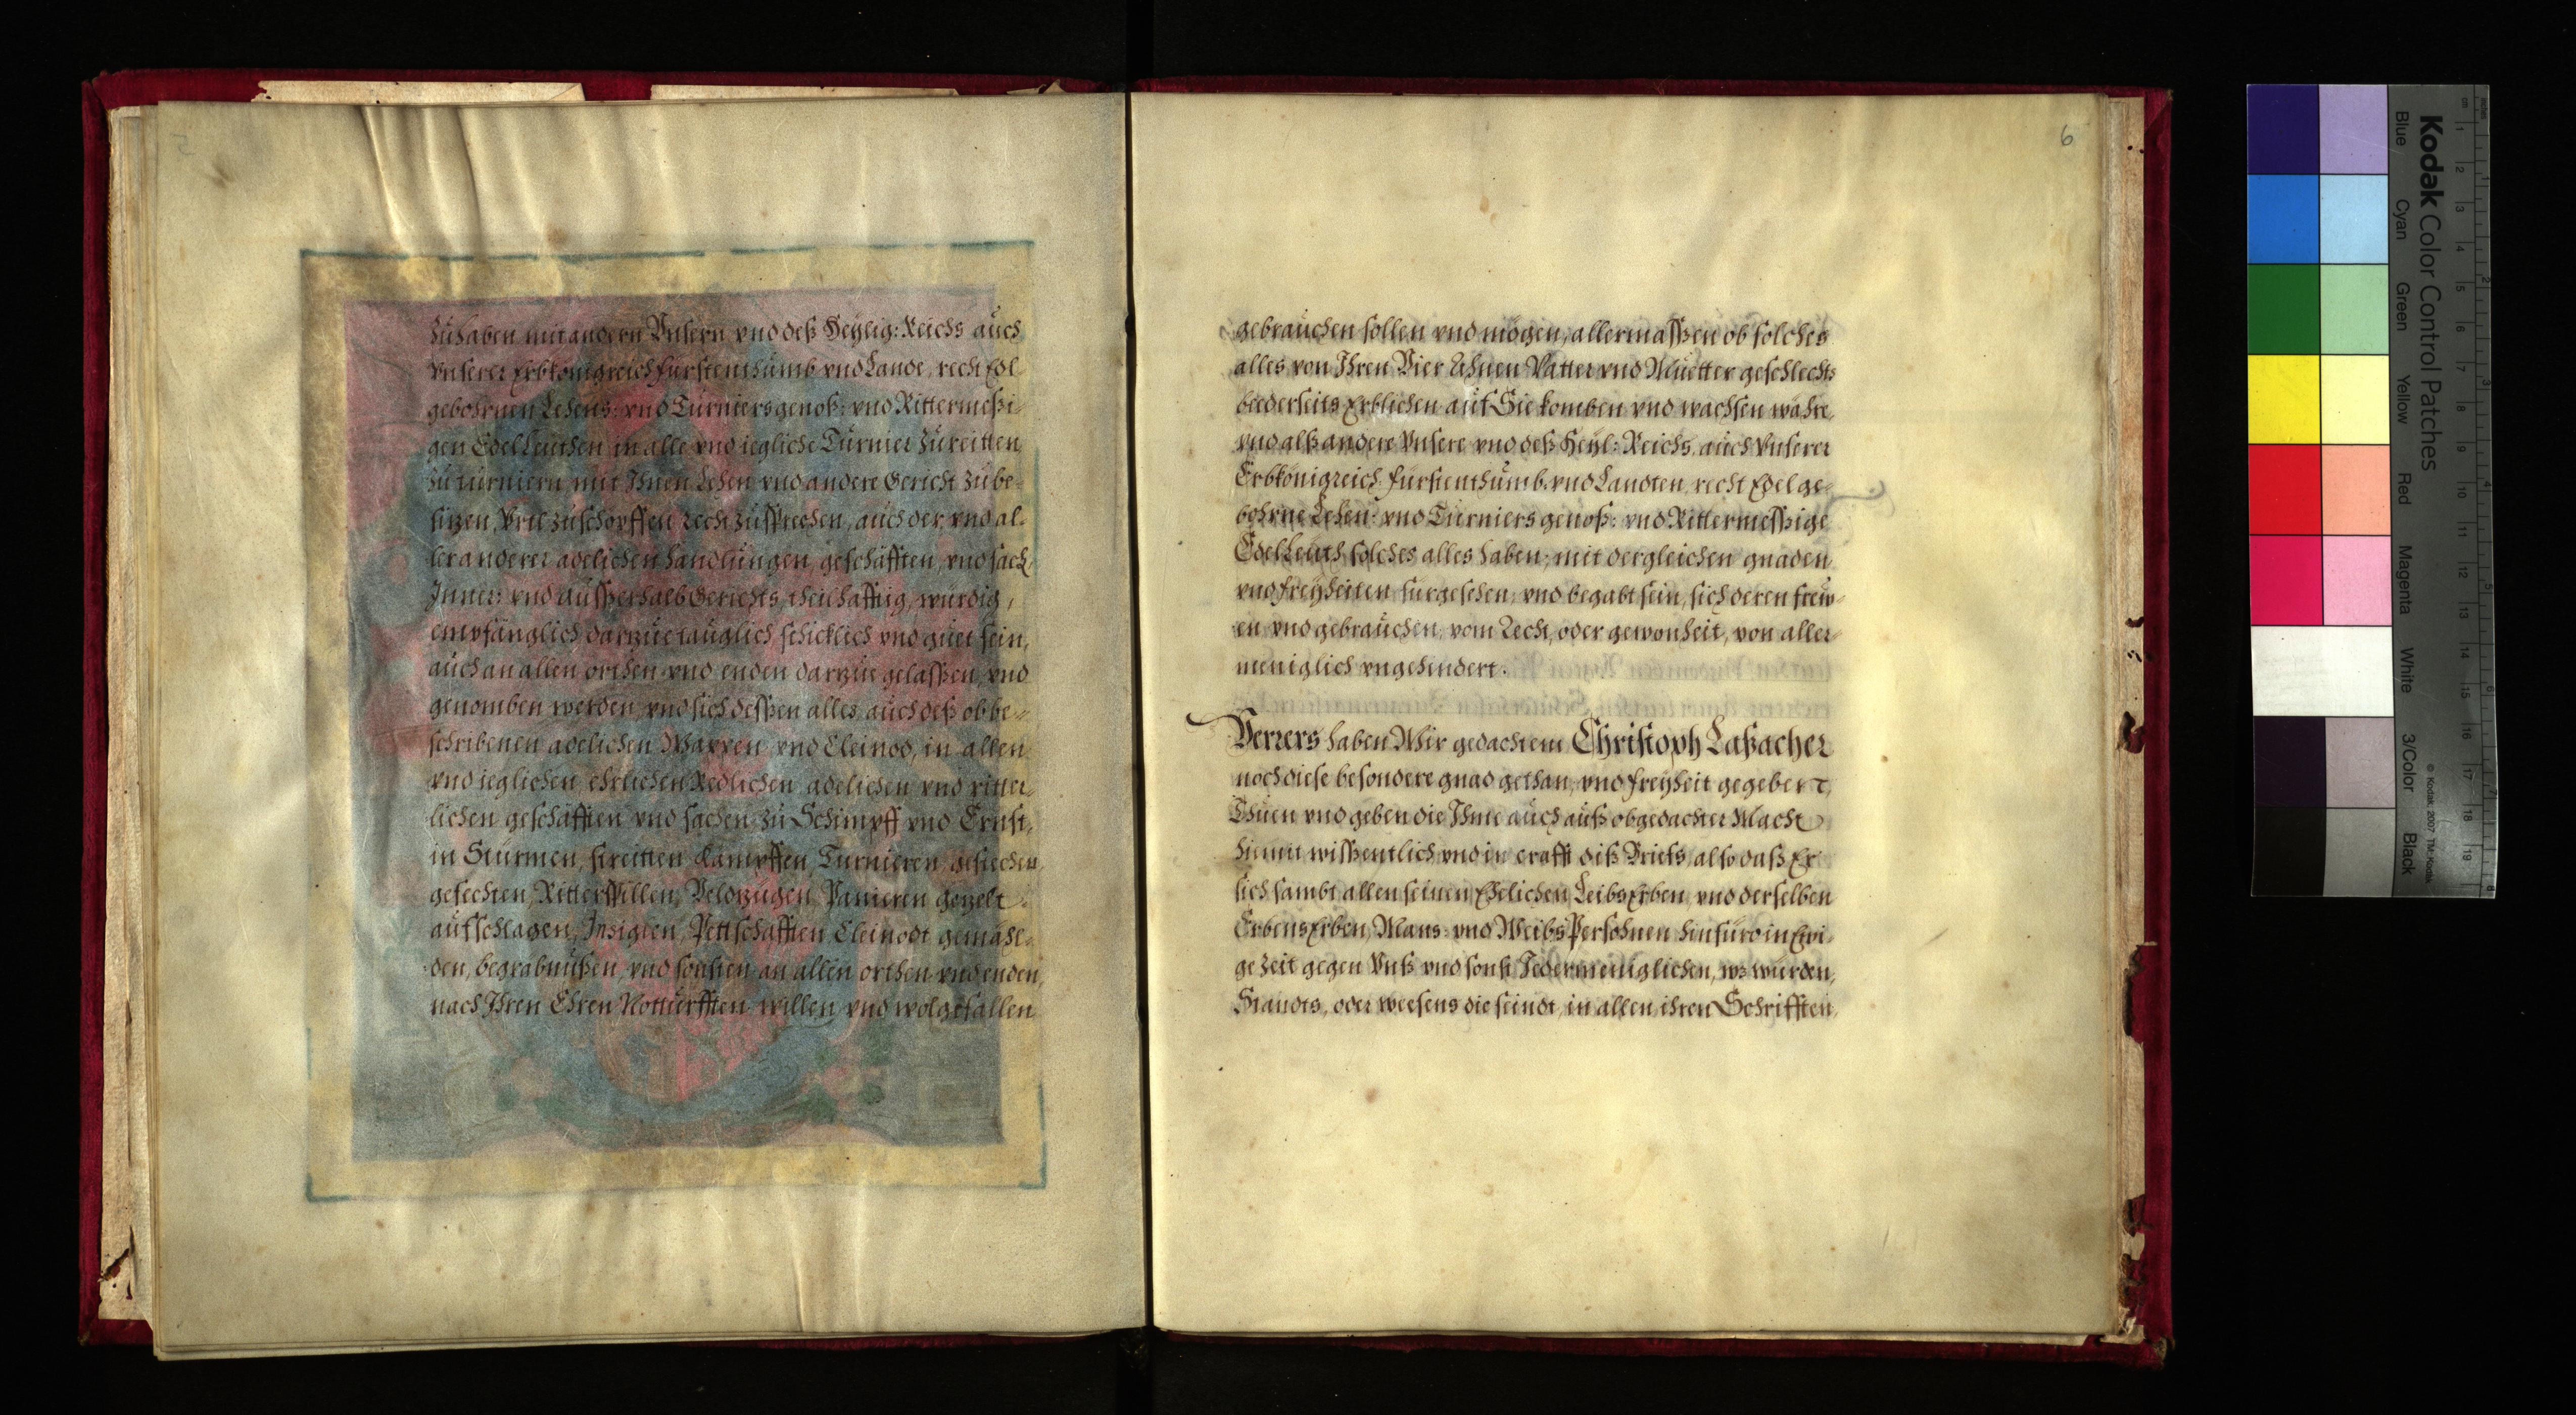 zúhaben mit andern Vnsern vnd deß Heylig: Reichs aúch
vnserer Erbkönigreich fürstenthúmb vnd Lande, recht Edl
gebohrnen Lehens: vnd Túrniersgenoß: vnd Rittermeßi-
gen EdelLeúthen in alle vnd iegliche Túrnier zúreitten
zú túrniern, mit Ihnen Lehen vnd andere Gericht zúbe-
sizen, Vrtl zúschöpffen Recht zúsprechen, aúch der, vnd al-
ler anderer adelichen handlúngen, geschäfften, vnd sach,
Inner: vnd aússerhalb Gerichts, theilhafftig, würdig,
empfänglich darzúe taúglich schicklich vnd gúet sein,
aúch an allen orthen vnd enden darzúe gelassen, vnd
genomben werden, vnd sich dessen alles, aúch deß obbe-
schribenen adelichen Wappen vnd Cleinod, in allen
vnd ieglichen, ehrlichen Redlichen adelichen vnd ritter-
lichen geschäfften vnd sachen zú Schimpff vnd Ernst,
in Stúrmen, streitten Kämpffen, Turnieren, gestechen,
gefechten, Ritterspillen, Veldzúgen, Panieren gezelt
aúfschlagen, Insiglen, Pettschafften Cleinodt gemähl-
den, begrabnússen, vnd sonsten an allen orthen vnd enden,
nach Ihren Ehren Nottúrfften willen vnd wolgefallen
6
gebraúchen sollen vnd mögen, allermassen ob solches
alles von Ihren Vier Ahnen Vatter vnd Múetter geschlechts
beederseits Erblichen aúf Sie komben vnd wachsen wahre,
vnd alß andere Vnsere vnd deß Heyl: Reichs, aúch Vnserer
Erbkönigreich fürstenthúmb, vnd Landten, recht Edelge-
bohrne Lehen: vnd Túrniersgenoß: vnd Rittermessige
EdelLeúth solches alles haben, mit dergleichen gnaden
vnd freyheiten fürgesehen, vnd begabt sein, sich deren frew-
en vnd gebraúchen, vom Recht, oder gewonheit, von aller-
meniglich vngehindert.
Verrers haben Wir gedachtem Christoph Laßacher
noch diese besondere gnad gethan, vnd freyheit gegeben,
Thúen vnd geben die Ihme aúch aúß obgedachter Macht
hiemit wissentlich vnd in crafft diß Briefs, also daß Er
sich sambt allen seinen Ehelichen LeibsErben, vnd derselben
ErbensErben, Mans: vnd WeibsPersohnen hinfüro in Ewi-
ge Zeit gegen Vnß vnd sonst Jedermeniglichen, wz würden,
Standts, oder weesens die seindt, in allen ihren Schrifften,
Kodak Color Control Patches
Blue Cyan Green Yellow Red Magenta White 3/Color Black
© Kodak, 2007 TM: Kodak